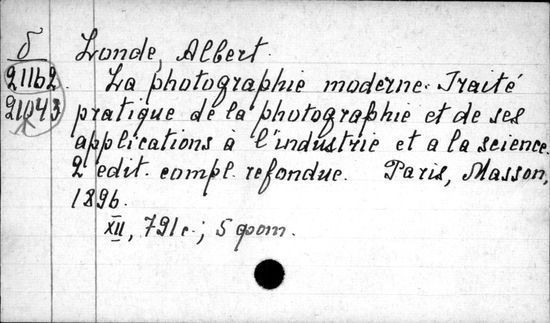 б Londe, Albert.
21162 La photographie moderne. Traité
21043 pratique de la photographie et de ses
applications à l'industrie et a la science.
2e edit. compl. refondue. Paris, Masson,
1896.
XII, 791 c.; 5 фот.